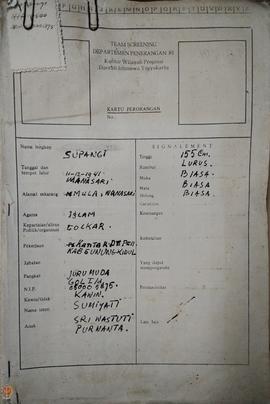 TEAM SCREENING
DEPARTEMEN PENERANGAN RI
Kantor Wilayah Propinsi
Daerah Istimewa Yogyakarta
KARTU PERORANGAN
No.
Nama lengkap SUPANGI
Tanggal dan tempat lahir 11-12-1941 WANASARI
Alamat sekarang MULA, WANASARI
Agama ISLAM
Kepartaian/aliran Politik/organisasi GOLKAR.
Pekerjaan KANTOR DEPPEN KAB GUNUNG KIDUL
Jabatan
Pangkat JURU MUDA GOL I/A
N.I.P.
Kawin/tidak KAWIN.
Nama isteri SUMIYATI
Anak SRI WASTUTI
PURNANTA.
SIGNALEMENT
Tinggi 155 Cm.
Rambut LURUS.
Muka BIASA.
Mata BIASA
Hidung BIASA.
Kesenangan
Kebiasaan
Yang dapat mempengaruhi
Lain-lain